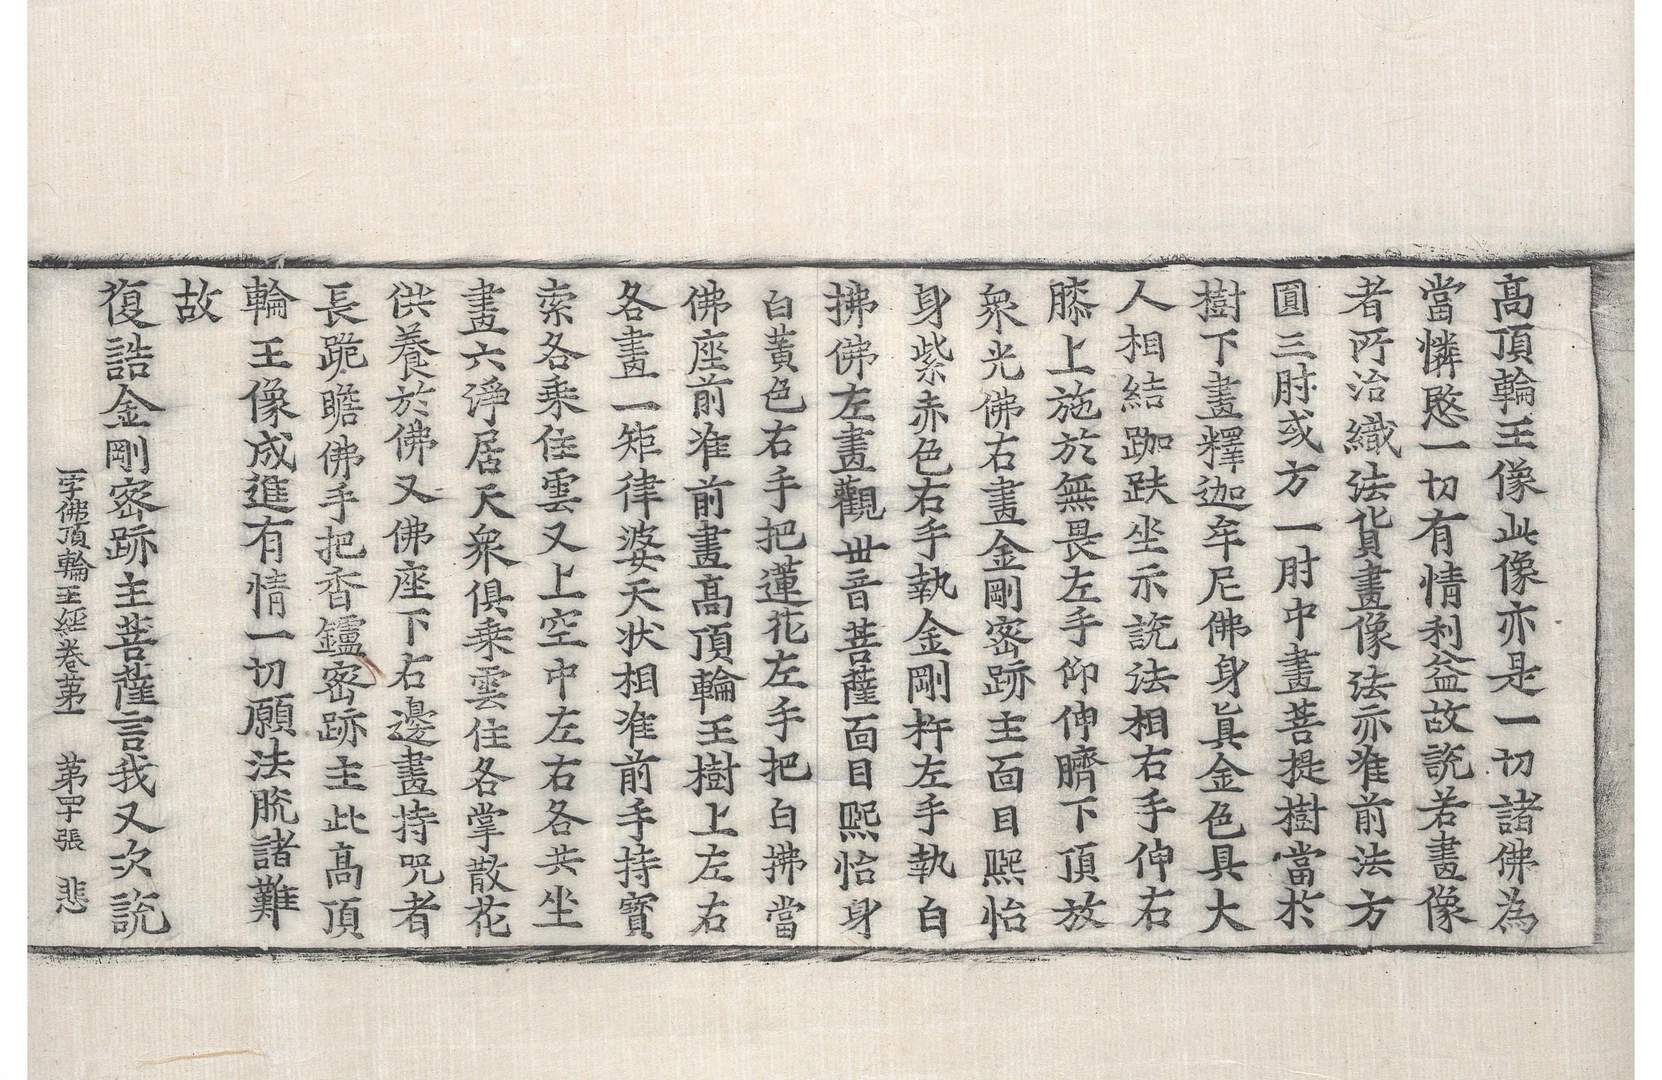 高頂輪王像此像亦是一切諸佛為
當憐愍一切有情利益故說若畫像
者所治織法貨畫像法亦准前法方
圓三肘或方一肘中畫菩提樹當於
樹下畫釋迦牟尼佛身真金色具大
人相結跏趺坐示說法相右手伸右
膝上施於無畏左手仰伸臍下頂放
衆光佛右畫金剛密跡主面目熙怡
身紫赤色右手執金剛杵左手執白
拂佛左畫觀世音菩薩面目熙怡身
白黃色右手把蓮花左手把白拂當
佛座前准前畫高頂輪王樹上左右
各畫一矩律婆天狀相准前手持寶
索各乘住雲又上空中左右各共坐
畫六淨居天衆俱乘雲住各掌散花
供養於佛又佛座下右邊畫持呪者
長跪瞻佛手把香鑪密跡主此高頂
輪王像成進有情一切願法脫諸難
故
復誥金剛密跡主菩薩言我又次說
一字佛頂輪王經卷第一 第四十張 悲